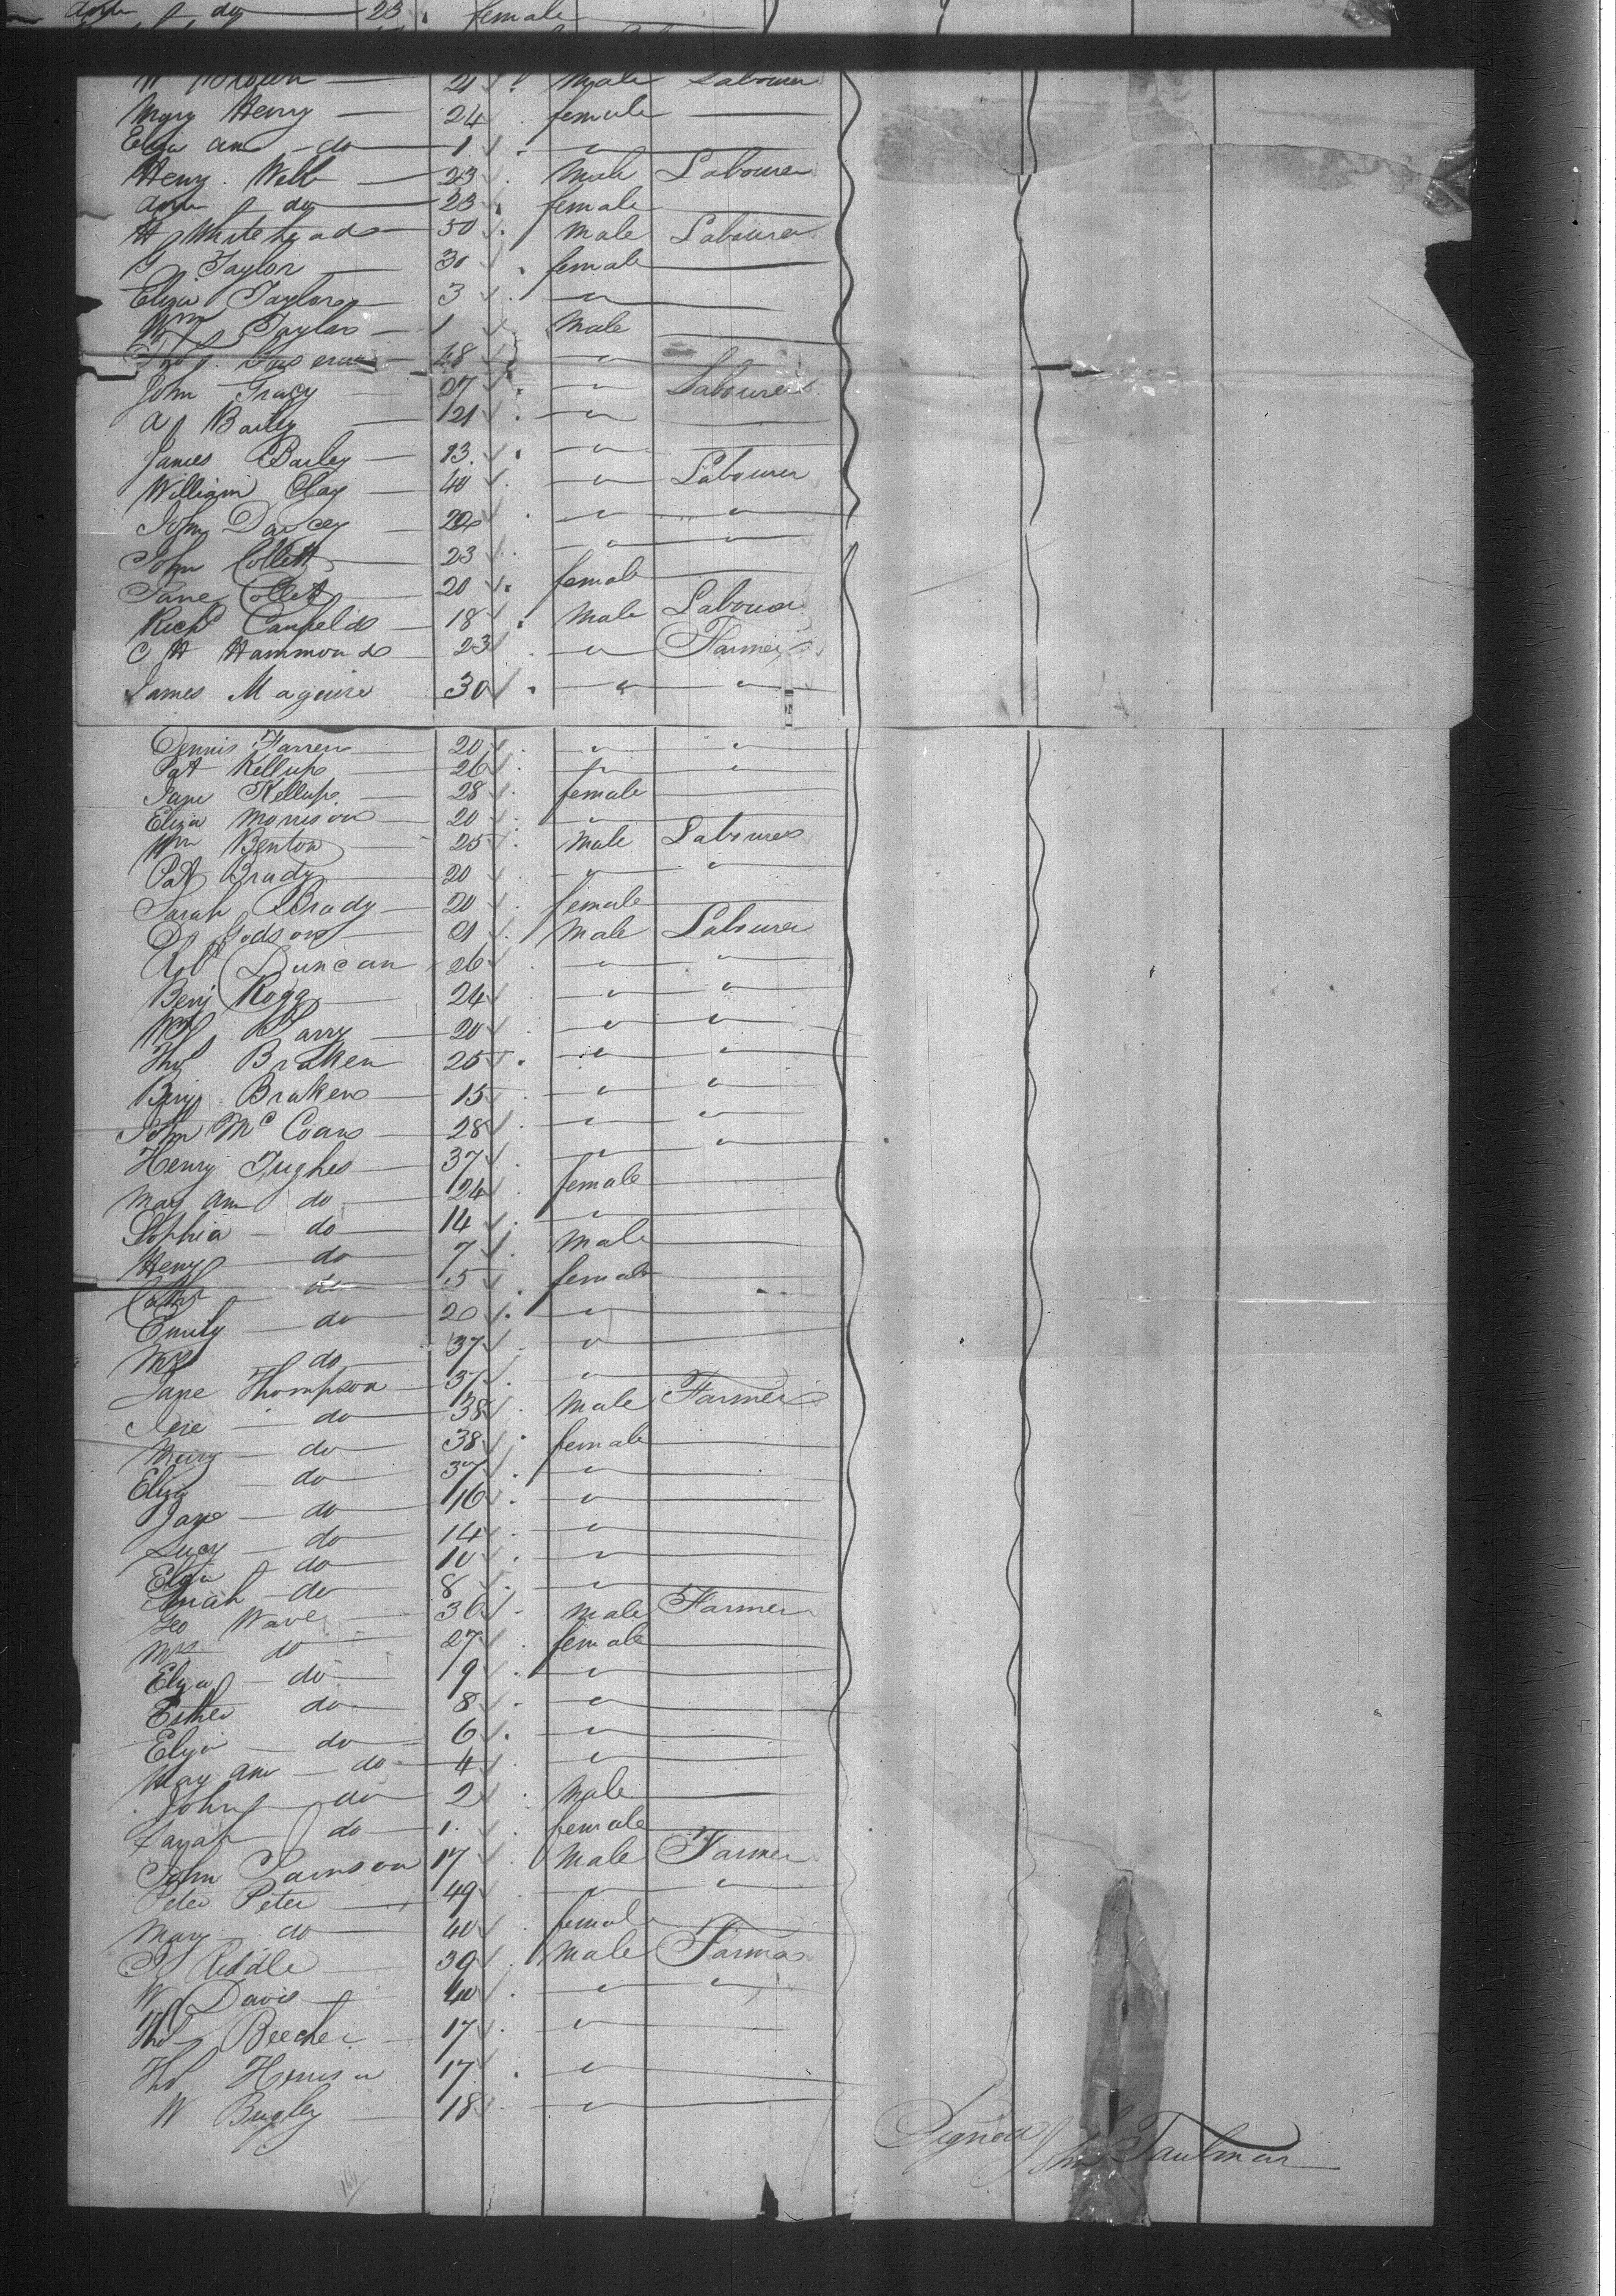 Ann do 23 female
W Brown 21 Male Labourer
Mary Henry 24 female
Eliza Ann do 1 "
Henry Webb 23 Male Labourer
Ann do 23 female
H Whitehead 50 Male Labourer
G Taylor 30 female
Eliza Taylor 3 "
Wm Taylor 1 Male
48 "
John Tracy 27 " Labourer
A Bailey 21 "
James Bailey 13 "
William Clay 40 " Labourer
John Darcey 22 " "
John Collett 23 " "
Jane Collett 20 female
Richd Canfield 18 Male Labourer
C H Hammond 23 " Farmer
James Maguire 30 " "
Dennis Farren 20 " "
Pat Kellup 26 " "
Jane Kellup 28 female
Eliza Morrison 20 "
Wm Benton 25 Male Labourer
Pat Brady 20 " "
Sarah Brady 20 female
Hodson 21 Male Labourer
Robt Duncan 26 " "
Benj Rogg 24 " "
Wm Parry 20 " "
Thos Braken 25 " "
Benj Braken 15 " "
John McCoan 28 " "
Henry Hughes 37 " "
Mary Ann do 24 female
Sophia do 14 "
Henry do 7 Male
Cath do 5 female
Emily do 20 "
Mrs do 37 "
Jane Thompson 37 "
do 38 Male Farmer
Mary do 38 female
Eliza do 37 "
Jane do 16 "
Lucy do 14 "
Eliza do 10 "
Sarah do 8 "
Geo Wave 36 Male Farmer
Mrs do 27 female
Eliza do 9 "
Esther do 8 "
Eliza do 6 "
Mary Ann do 4 "
John do 2 Male
Sarah do 1 female
John Parnson 17 Male Farmer
Peter Peter 49 " "
Mary do 40 female
J Riddle 39 Male Farmer
W Davis 40 " "
Thos Beecher 17 "
Thos 17 "
W Bugley 18 "
Signed Jno Taubman